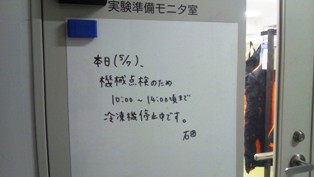 実験準備モニタ室
本日(5/7)、
機械点検のため
10:00～14:00頃まで
冷凍機停止中です。
石田